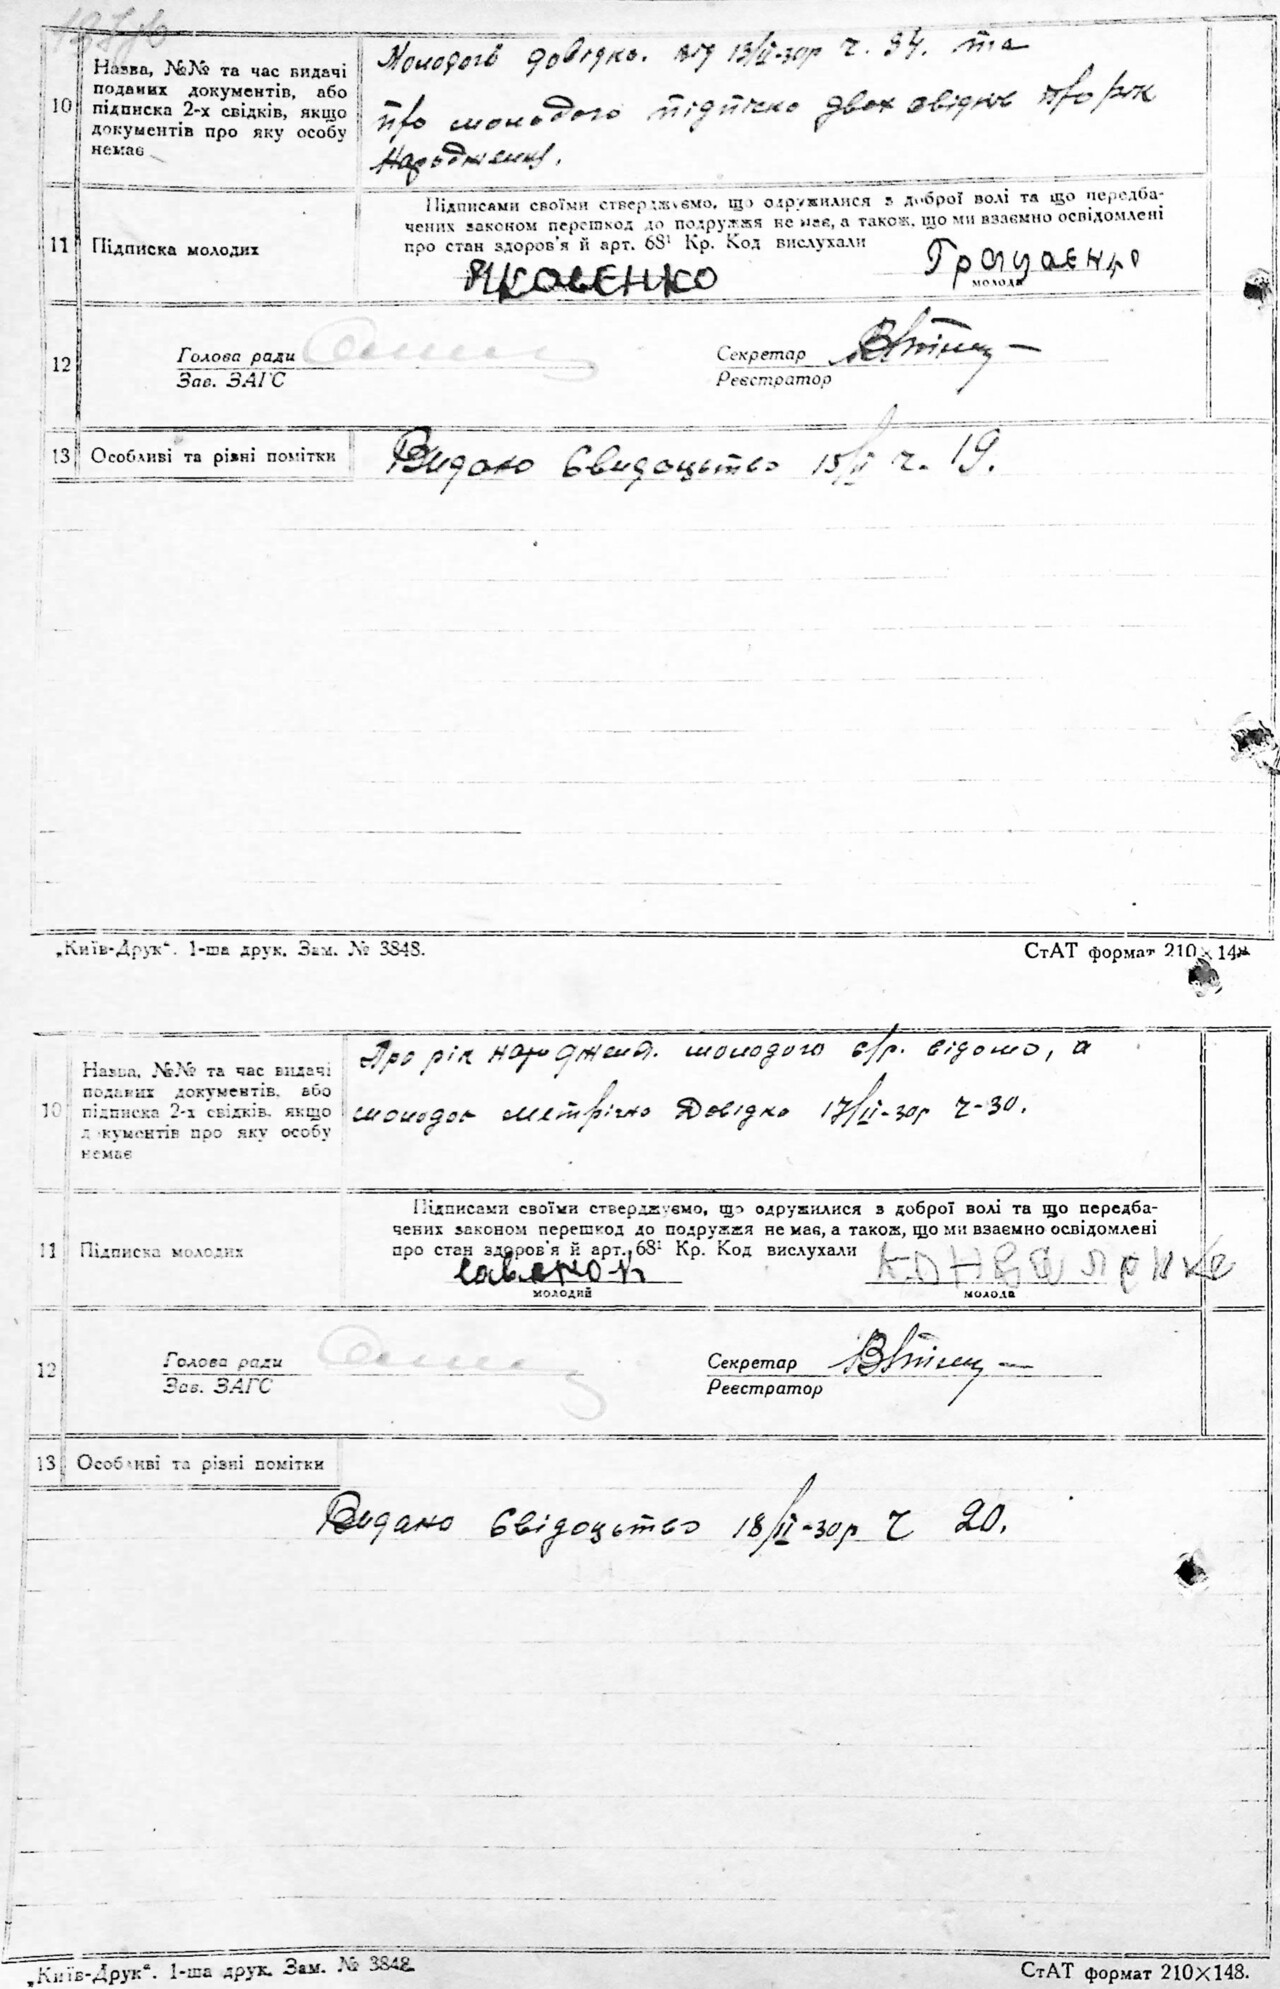 10
Назва, №№ та час видачі
поданих документів, або
підписка 2-х свідків, якщо
документів про яку особу
немає
довідка. від 13/II-30р ч. 34. та
про молодого підписка двох свідків про рік
народження.
11
Підписка молодих
Підписами своїми стверджуємо, що одружилися з доброї волі та що передба-
чених законом перешкод до подружжя не має, а також, що ми взаємно освідомлені
про стан здоров'я й арт. 68¹ Кр. Код вислухали
Яковенко
молода
12
Голова ради
Зав. ЗАГС
Секретар
Реєстратор
13
Особливі та різні помітки
Видано Свидоцтво 15/II ч. 19.
„Київ-Друк“. 1-ша друк. Зам. № 3848.
СтАТ формат 210×148
10
Назва, №№ та час видачі
поданих документів, або
підписка 2-х свідків, якщо
документів про яку особу
немає
Про рік народжен. молодого с/р. відомо, а
метрична Довідка 17/II-30р ч-30.
11
Підписка молодих
Підписами своїми стверджуємо, що одружилися з доброї волі та що передба-
чених законом перешкод до подружжя не має, а також, що ми взаємно освідомлені
про стан здоров'я й арт. 68¹ Кр. Код вислухали
молодий
молода
12
Голова ради
Зав. ЗАГС
Секретар
Реєстратор
13
Особливі та різні помітки
Видано Свідоцтво 18/II-30р ч 20.
„Київ-Друк“. 1-ша друк. Зам. № 3848.
СтАТ формат 210×148.